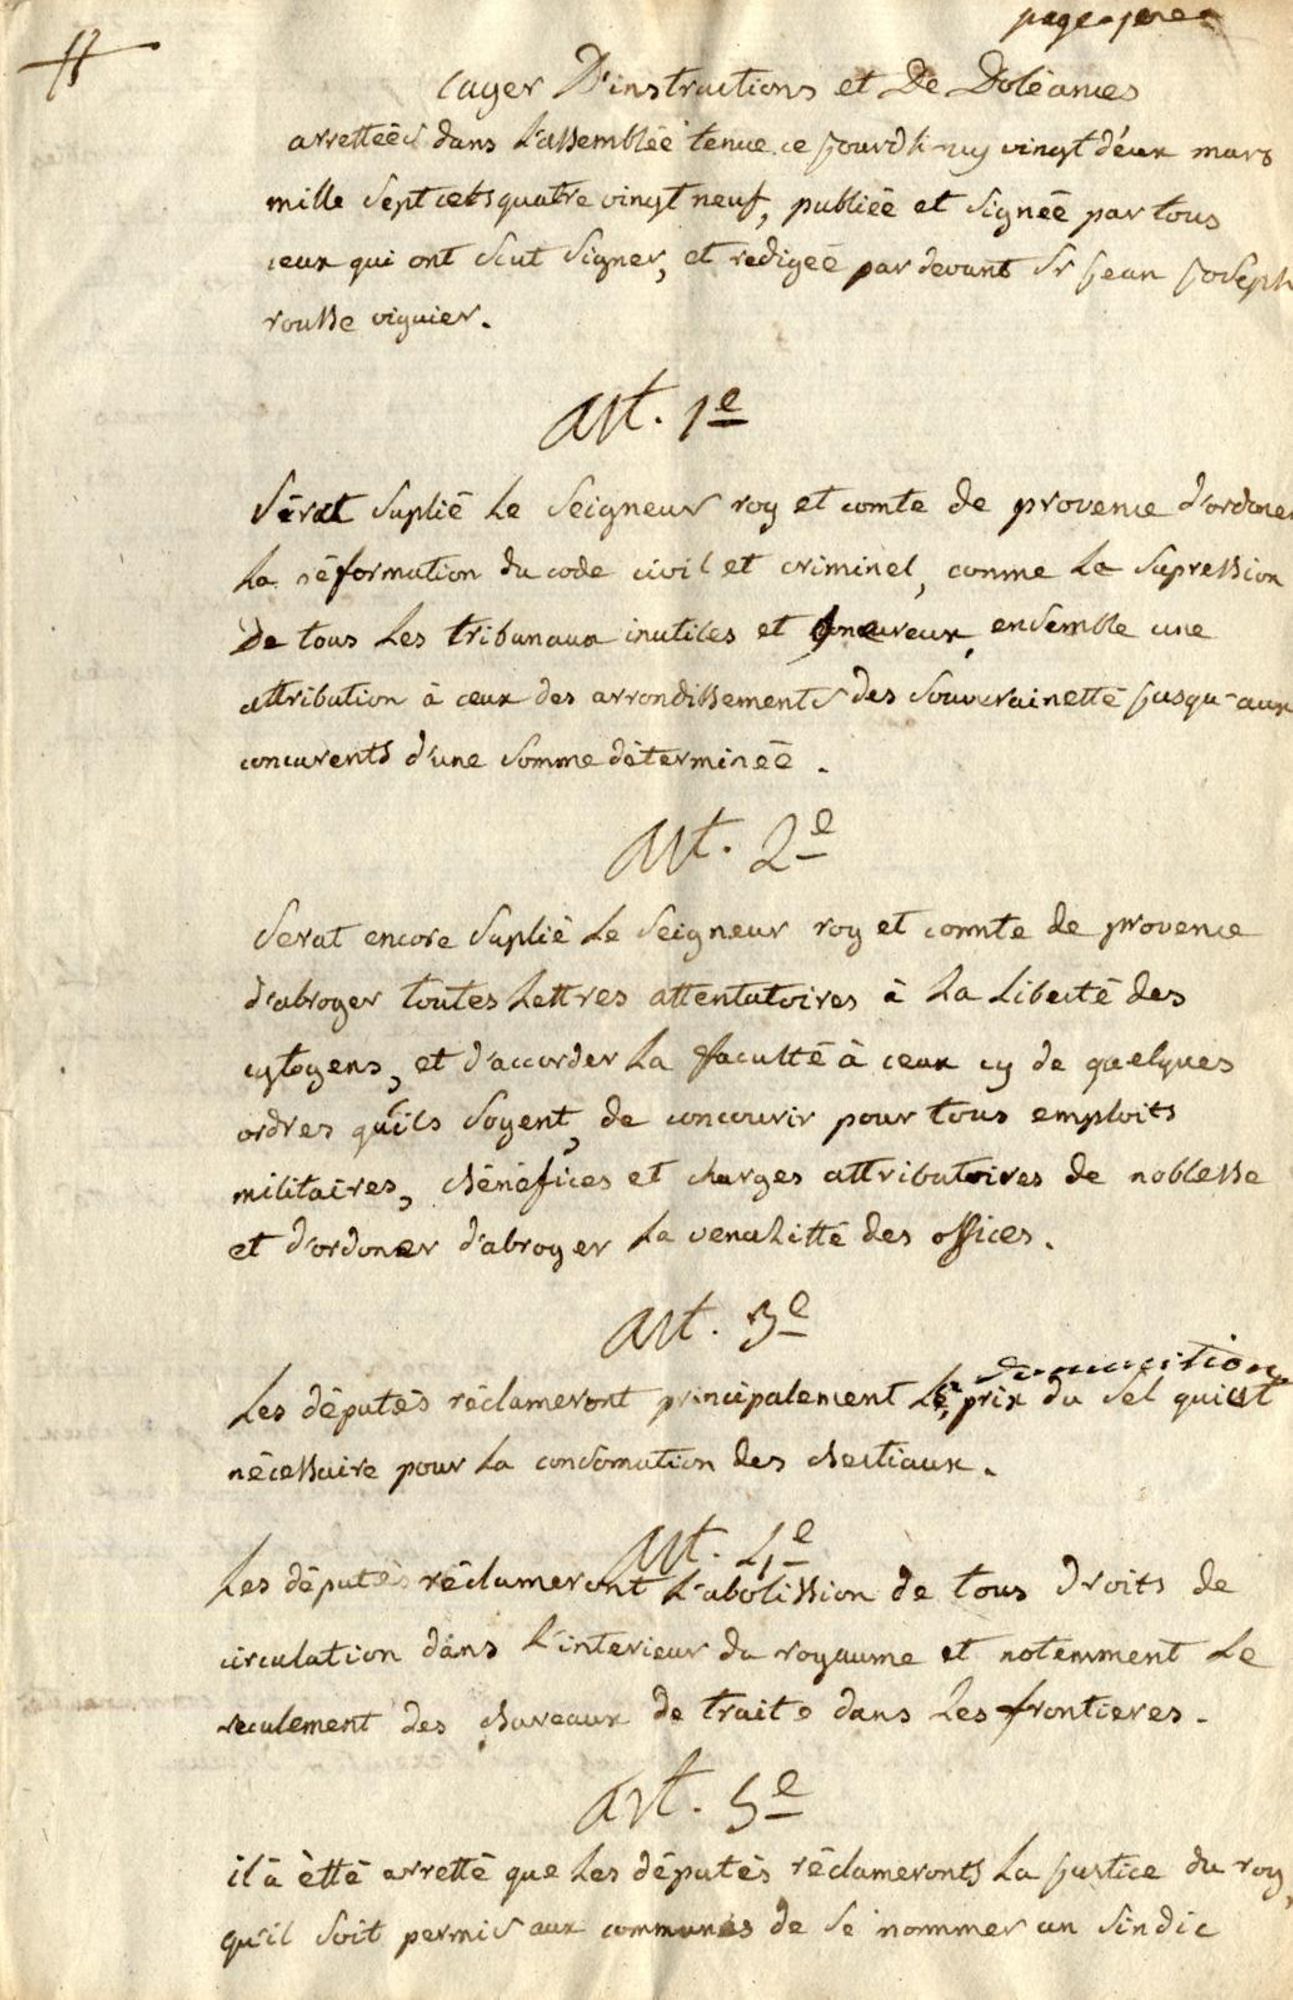 page 1ere
cayer D'instructions et De Doléances
arrettéés dans l'assemblée tenue ce jourdhuy vingt déux mars
mille sept cets quatre vingt neuf, publiéé et signéé par tous
ceux qui ont scut signer, et redigéé par devant Sr jean joseph
rousse viguier.
art. 1e
sérat suplié le seigneur roy et comte de provence d'ordoner
la réformation du code civil et criminel, comme la supression
De tous les tribunaux inutiles et onereux, ensemble une
attribution à ceux des arrondissements des souverainetté jusqu'aux
concurents d'une somme déterminéé.
art. 2e
serat encore suplié le seigneur roy et comte de provence
d'abroger toutes lettres attentatoires à la liberté des
cytoyens, et d'accorder la faculté à ceux cy de quelques
ordres qu'ils soyent, de concourir pour tous emploits
militaires, bénéfices et charges attributoires de noblesse
et d'ordoner d'abroger la venalitté des offices.
art. 3e
Les députés réclameront principalement le prix du sel qui est
nécessaire pour la consomation des bestiaux.
art. 4e
Les députés réclameront l'abolission de tous droits de
circulation dans l'interieur du royaume et notemment le
reculement des bureaux de traite dans les frontieres.
art. 5e
il à étté arretté que les députés réclameronts la justice du roy,
qu'il soit permis aux communes de se nommer un sindic